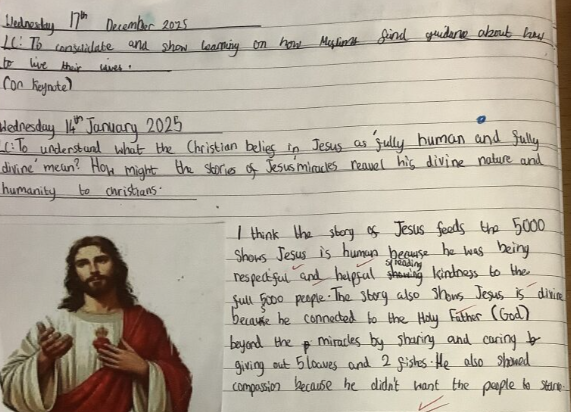 Wednesday 17th December 2025
LC: To consolidate and show learning on how Muslims find guidance about how
to live their lives.
(on Keynote)
Wednesday 14th January 2025
LC: To understand what the Christian belief in Jesus as 'fully human and fully
divine' mean? How might the stories of Jesus' miracles reveal his divine nature and
humanity to christians.
I think the story of Jesus feeds the 5000
shows Jesus is human because he was being
respectful and helpful spreading kindness to the
full 5000 people. The story also shows Jesus is divine
because he connected to the Holy Father (God)
beyond the miracles by sharing and caring by
giving out 5 loaves and 2 fishes. He also showed
compassion because he didn't want the people to starve.